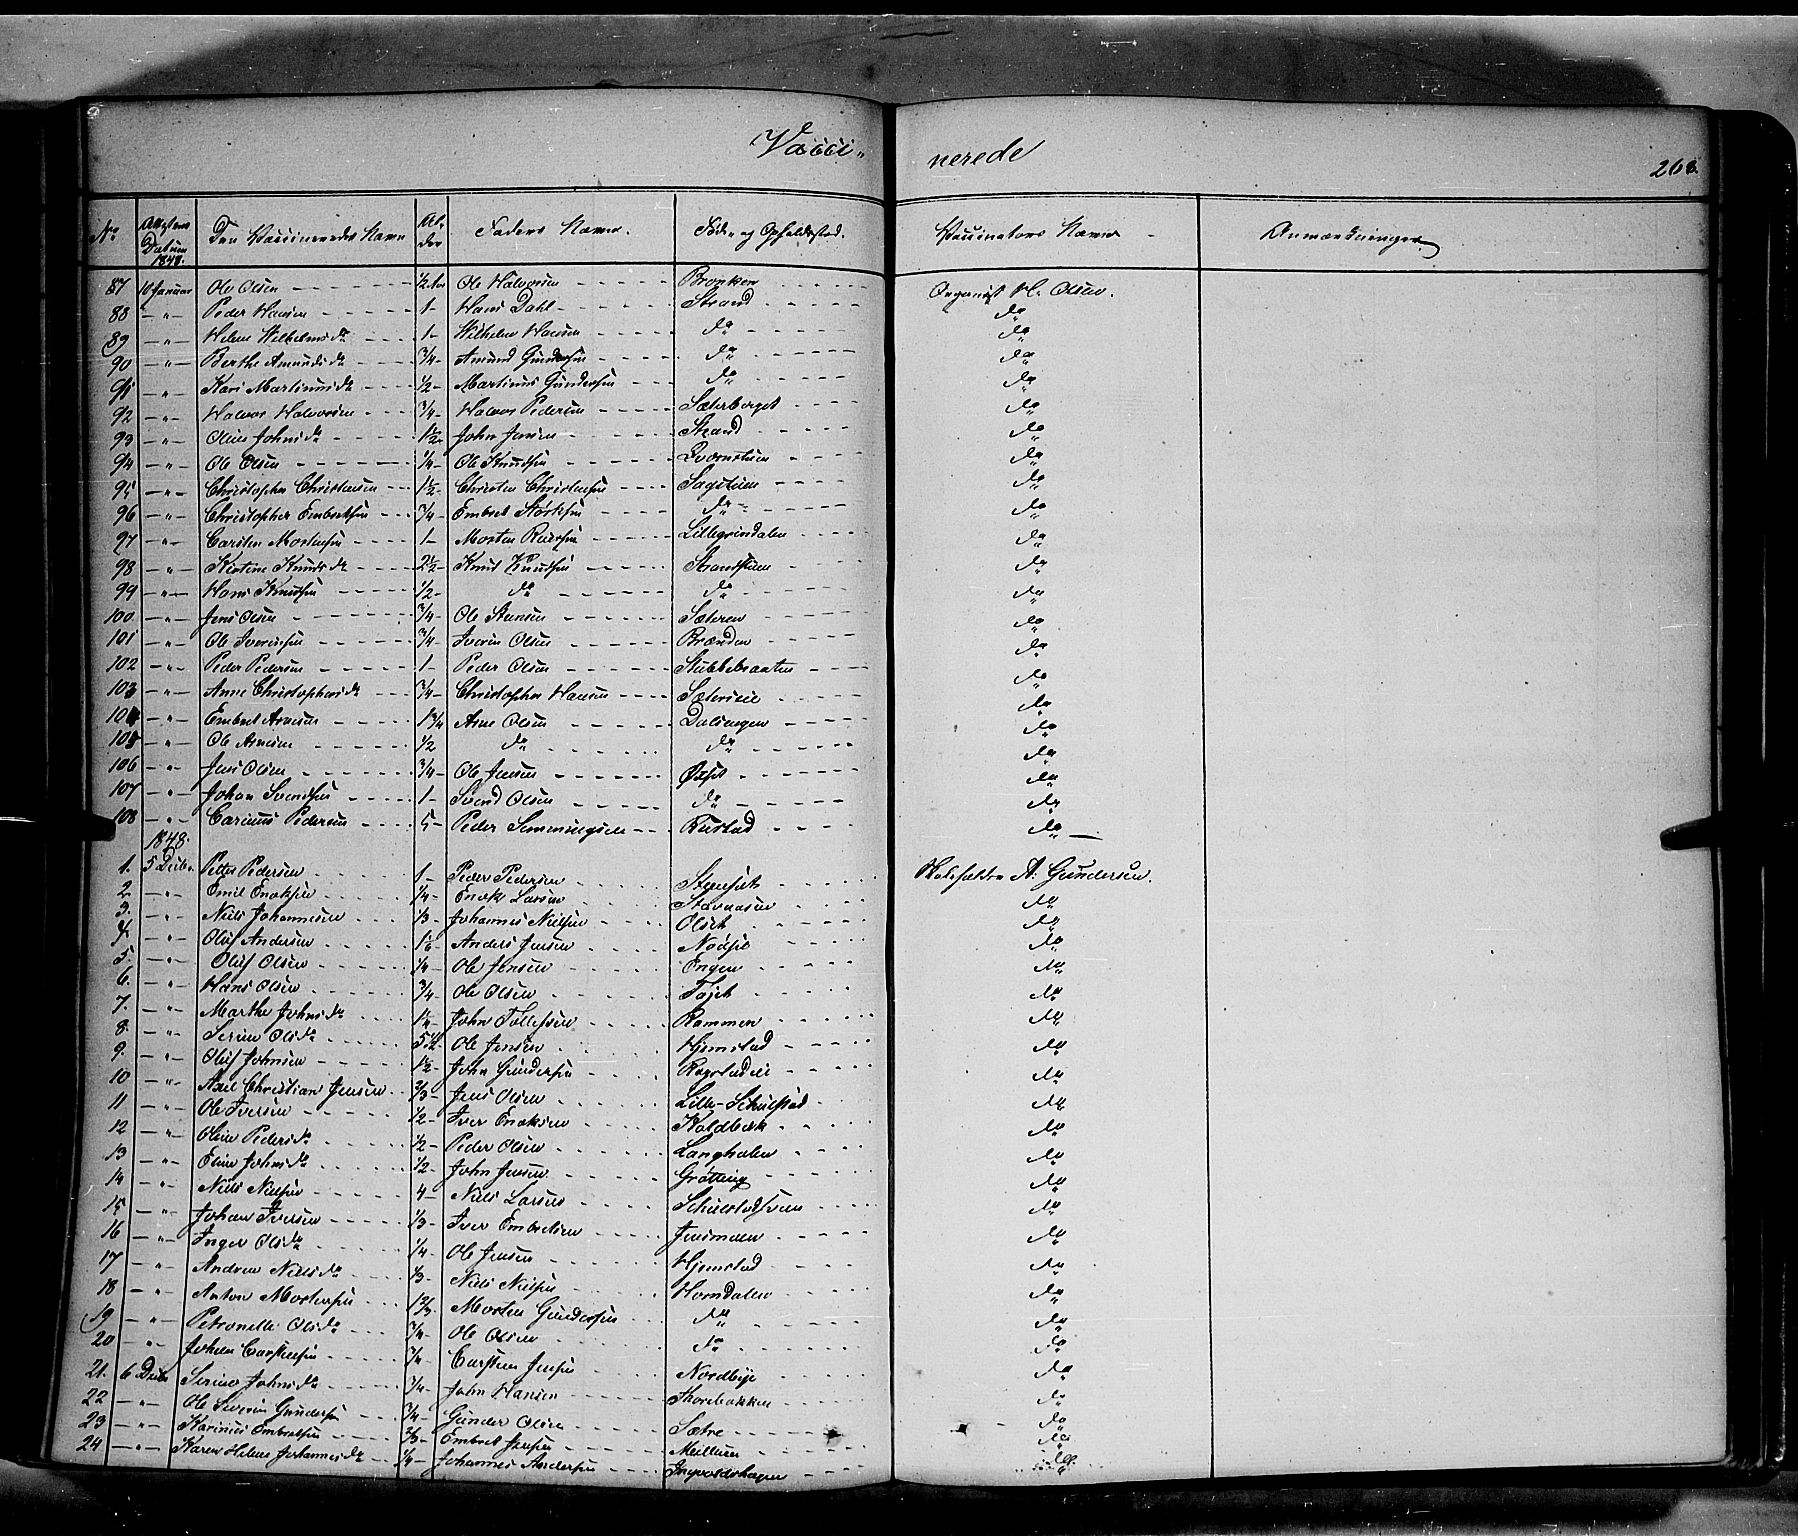 Vacci-nerede
268.
No | Attestens Datum 1848. | Den Vaccineredes Navn | Alder | Faders Navn. | Føde- og Opholdssted. | Vaccinatørs Navn | Anmærkninger
87 10 Januar Ole Olsen ½ Ole Halvorsen Bronken Organist H. Olsen.
88 -"- Peder Hansen 1- Hans Dahl Strand do
89 -"- Helene Wilhelmsdr 1- Wilhelm Hansen do do
90 -"- Berthe Amundsdr ¾- Amund Gundersen do do
91 -"- Kari Martinusdr ½- Martinus Gundersen do do
92 -"- Halvor Halvorsen ¾- Halvor Pedersen Sæterberget do
93 -"- Oline Johnsdr 1½- John Jensen Strand do
94 -"- Ole Olsen ¼- Ole Knudsen Qvernstuen do
95 -"- Christopher Christensen 1½- Christen Christensen Sagstuen do
96 -"- Christopher Embretsen ¾- Embret Størksen do do
97 -"- Carsten Mortensen 1- Morten Lillegrindalen do
98 -"- Kirstine Knudsdr 2½- Knud Knudsen Strandstuen do
99 -"- Hans Knudsen ½- do do do
100 -"- Jens Olsen ¾- Ole Steensen Sæteren do
101 -"- Ole Iversen ¾- Iver Olsen Brænden do
102 -"- Peder Pedersen 1- Peder Olsen Stubbebraaten do
103 -"- Anne Christophersdr ¾- Christopher Hansen Sætereie do
104 -"- Embret Arnesen 1¾ Arne Olsen Dalsengen do
105 -"- Ole Arnesen ½ do do do
106 -"- Jens Olsen ¾- Ole Jensen Øxset do
107 -"- Johan Svendsen 1- Svend Olsen do do
108 -"- Carinus Pedersen 5- Peder Simmingsen Rustad do
1848.
1. 5 Decbr Petter Pedersen 1- Peder Pedersen Stenset A. Gundersen.
2. -"- Emil Enoksen ¼- Enok Larsen Stavaasen do
3. -"- Niels Johannesen ⅓- Johannes Nielsen Olset do
4. -"- Oluf Andersen Anders Jensen Nodset do
5. -"- Oluf Olsen ¼- Ole Jensen Engen do
6. -"- Hans Olsen ¾- Ole Olsen Tøjet do
7. -"- Marthe Johnsdr John Tollefsen Rammen do
8. -"- Serine Olsdr 5½- Ole Jensen Hjemstad do
9. -"- Oluf Johnsen 1½- John Gundersen Rogstadeie do
10 -"- Axel Christian Jensen ⅔- Jens Olsen Lille-Schulstad do
11 -"- Ole Iversen ½- Iver Enoksen Koldbæk do
12 -"- Oline Pedersdr ½- Peder Olsen Langholen do
13 -"- Eline Johnsdr ½- John Jensen Grøtting do
14 -"- Niels Nielsen 4- Niels Larsen Schulstadsveen do
15 -"- Johan Iversen ⅓- Iver Embretsen Jensmoen do
16 -"- Inger Olsdr ¼- Ole Jensen Hjemstad do
17 -"- Andrea Nielsdr ⅓- Niels Nielsen Horndalen do
18 -"- Anton Mortensen 1⅔- Morten Gundersen do do
19 -"- Petronelle Olsdr ¾- Ole Olsen do do
20 -"- Johan Carstensen ¾- Carsten Jensen Nordbye do
21. 6 Decbr Serine Johnsdr ¾- John Hansen Thorebakken do
22 -"- Ole Severin Gundersen ¾- Gunder Olsen Sætre do
23 -"- Karinus Embretsen ⅔- Embret Jensen Mellem do
24 -"- Karen Helene Johannesdr ¼- Johannes Andersen Ingvoldshagen do